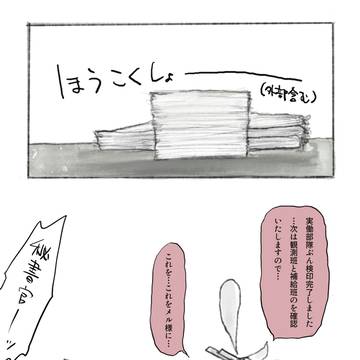 ほうこくしょ
(外部含む)
実働部隊ぶん検印完了しました
…次は観測班と補給班のを確認
いたしますので…
これを…これをメル様に…
秘書官ーッ